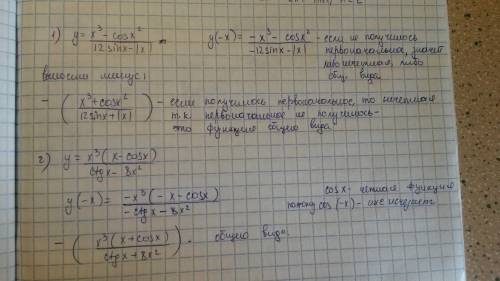 1) y = x³ - cosx² / 12sinx - |x|
y(-x) = -x³ - cosx² / -12sinx - |x| - если не получилось первоначальное, значит либо нечетная, либо общ. вида
выносим минус:
- ( x³ + cosx² / 12sinx + |x| ) - если получилось первоначальное, то нечетная
т.к. первоначальное не получилось-
это функция общего вида
2) y = x³(x - cosx) / ctgx - 8x²
y(-x) = -x³(-x - cosx) / -ctgx - 8x²
cosx - четная функция
поэтому cos(-x) - исчезает
- ( x³(x + cosx) / ctgx + 8x² ) - общего вида.